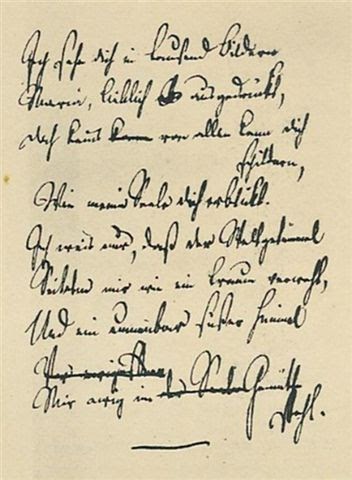 Ich sehe dich in tausend Bildern
Maria, lieblich ausgedrückt,
Doch keins kann von allen kann dich
schildern,
Wie meine Seele dich erblickt.
Ich weis nur, daß der Weltgetümmel
Seitdem mir wie ein Traum verweht,
Und ein unnenbar süßer Himmel
Mir ewig im der Seele Gemüthe
steht.